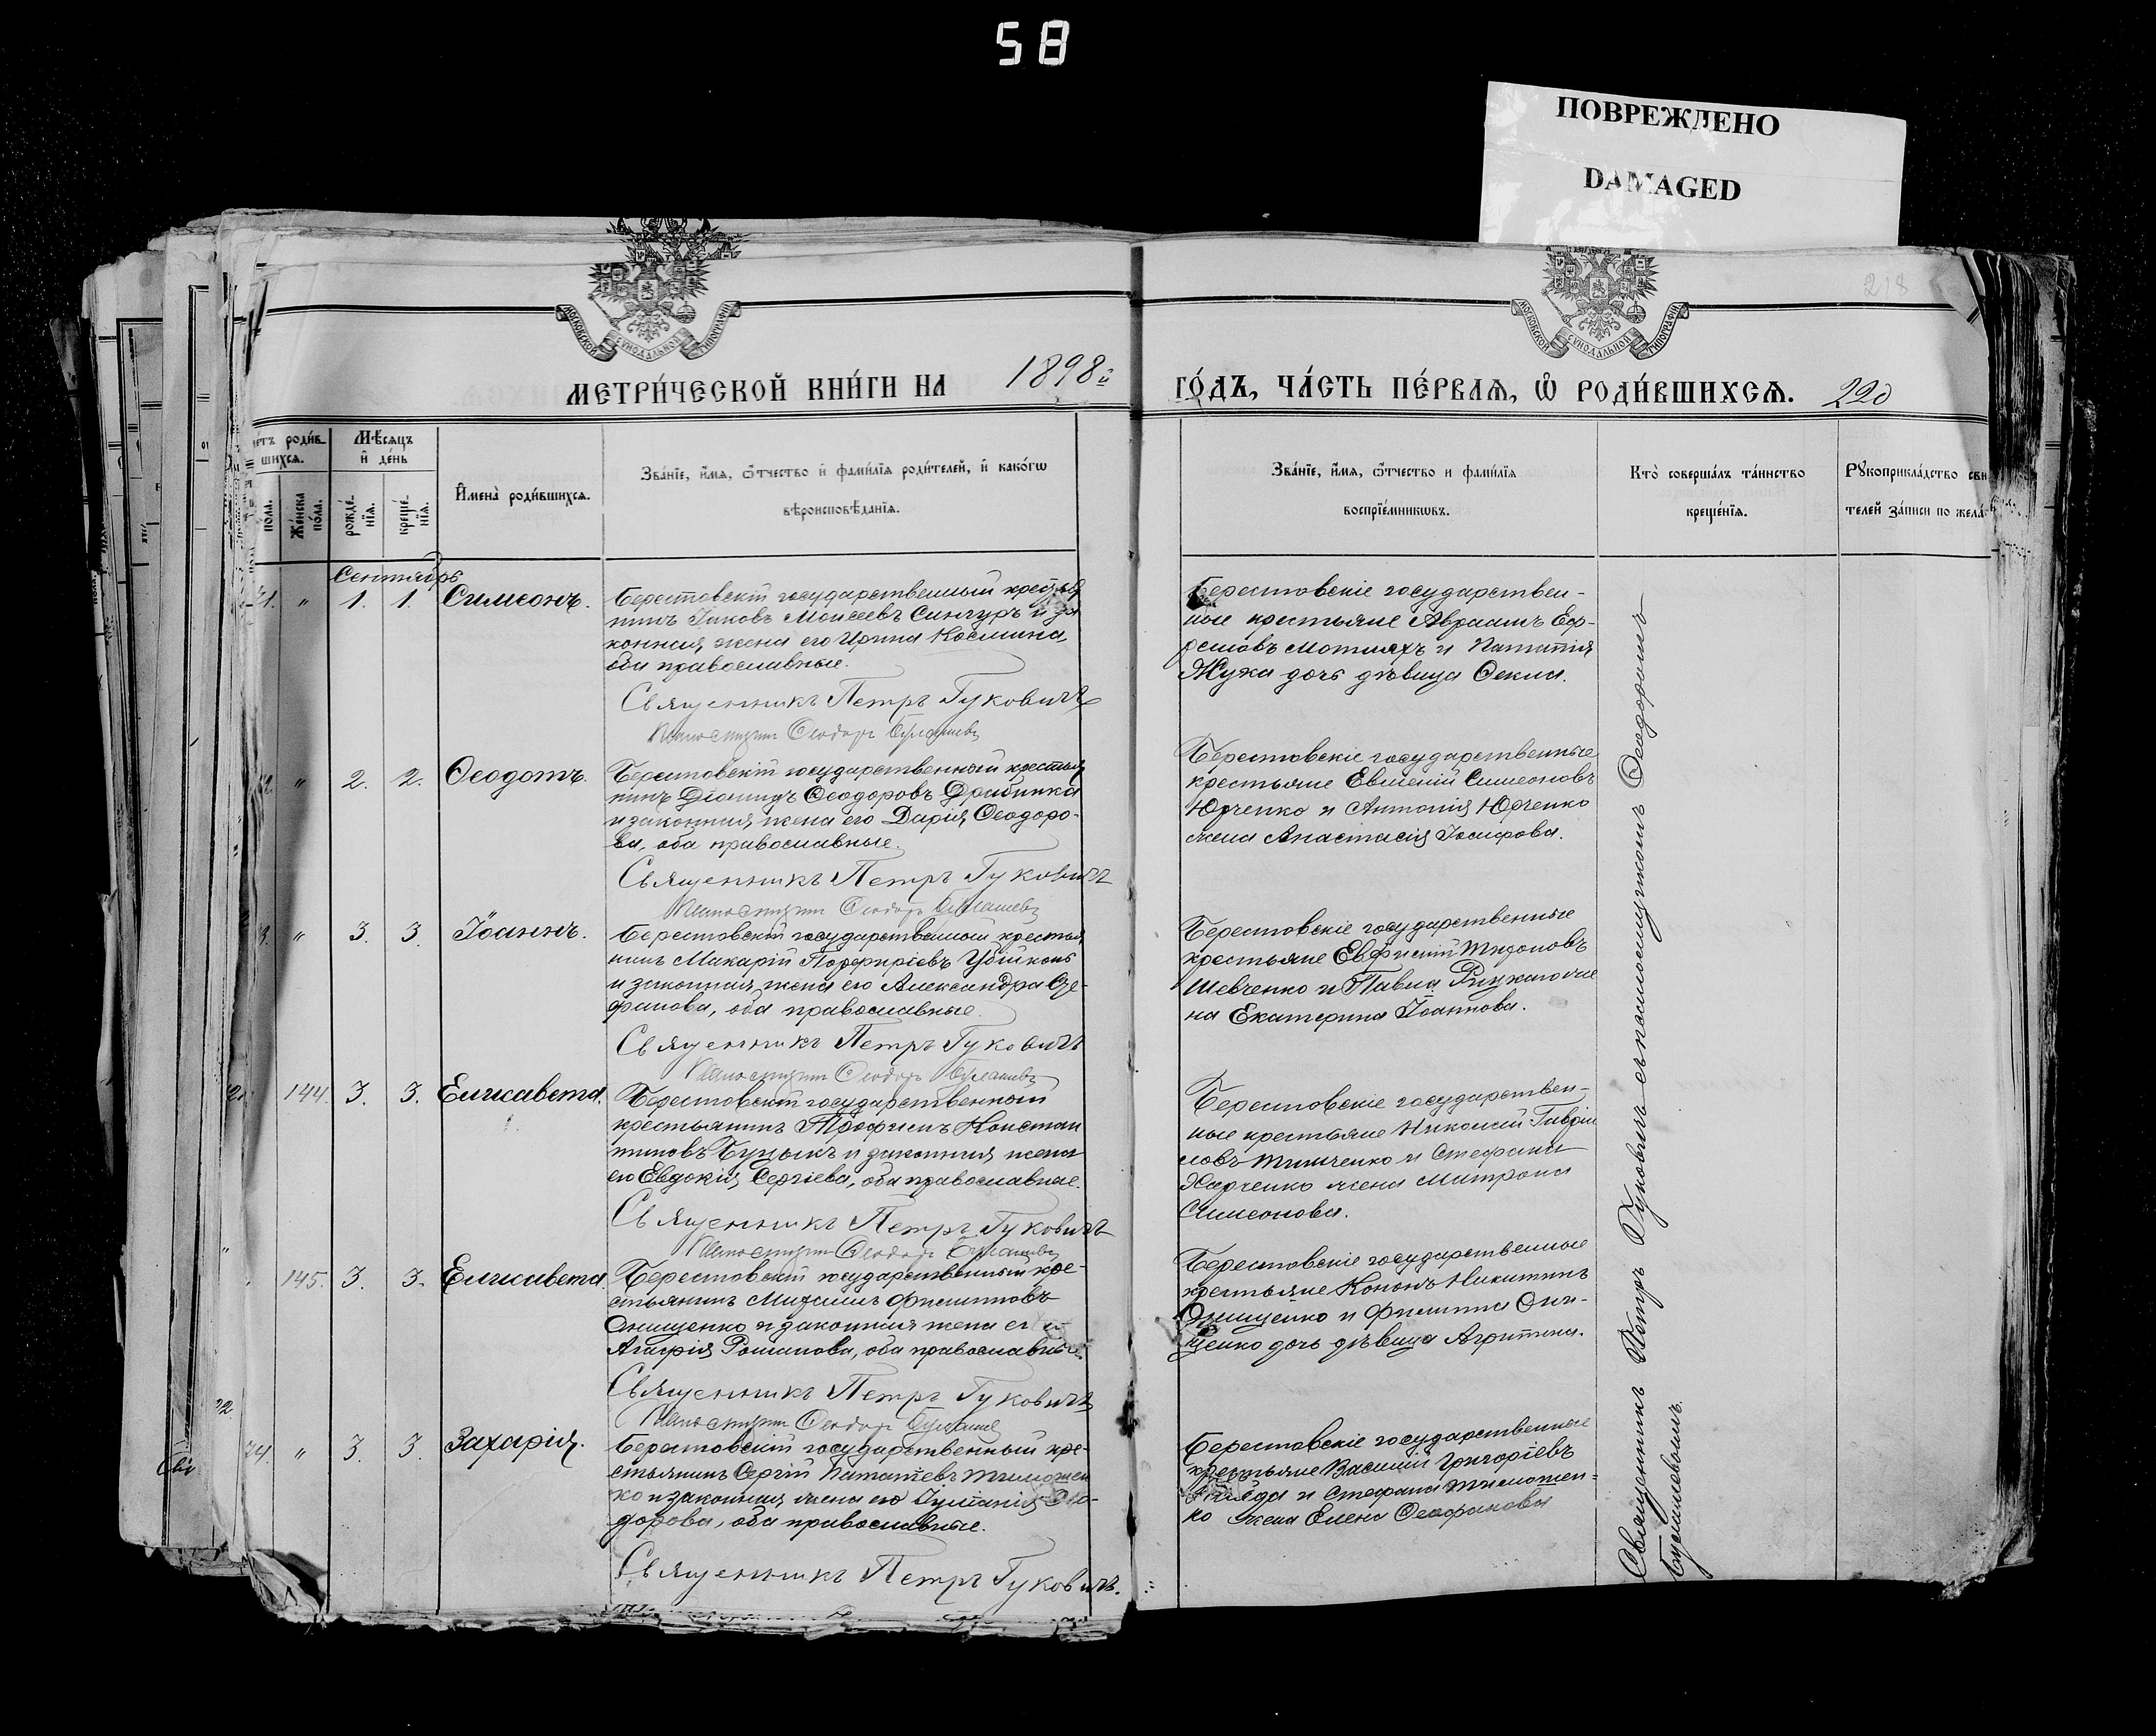 58
ПОВРЕЖДЕНО
DAMAGED
218
МОСКОВСКОЙ СѴНОДАЛЬНОЙ ТИПОГРАФІИ
МОСКОВСКОЙ СѴНОДАЛЬНОЙ ТИПОГРАФІИ
МЕТРИ́ЧЕСКОЙ КНИ́ГИ НА 1898й ГО́ДЪ, ЧА́СТЬ ПЕ́РВАѦ, Ѡ҆ РОДИ́ВШИХСѦ. 220
родив
шихсѧ.
пола.
Же́нска
по́ла.
Мѣ́сяцъ
и҆ де́нь
рожде́-
нїѧ.
креще́-
нїѧ.
И҆мена̀ роди́вшихсѧ.
Зва́нїе, и҆́мѧ, ѻ҆́тчество и҆ фами́лїѧ роди́телей, и҆ како́гѡ
вѣроисповѣ́данїѧ.
Зва́нїе, и҆́мѧ, ѻ҆́тчество и фами́лїѧ
воспрїе́мникѡвъ.
Кто̀ соверша́лъ та́инство
креще́нїѧ.
Рꙋкоприкла́дство сви
телей за́писи по жела
Сентябрь
" 1. 1. Симеонъ.
Берестовскій государственный крестья
нинъ Іаковъ Моисеевъ Синчуръ и за
конная жена его Ирина Космина,
оба православные.
Священникъ Петръ Гуковичъ
Псаломщикъ Ѳеодоръ
Берестовскіе государствен-
ные крестьяне Авраамъ Еф-
ремовъ и Игнатія
Жука дочь дѣвица Ѳекла.
" 2. 2. Ѳеодотъ.
Берестовскій государственный крестья
нинъ Діомидъ Ѳеодоровъ Дрибинка
и законная жена его Дарія Ѳеодоро-
ва, оба православные.
Священникъ Петръ Гуковичъ
Псаломщикъ Ѳеодоръ
Берестовскіе государственные
крестьяне Евменій Симеоновъ
Юрченко и Антонія Юрченко
жена Анастасія Іосифова.
" 3. 3. Іоаннъ.
Берестовскій государственный крестья
нинъ Макарій Порфиріевъ
и законная жена его Александра Сте-
фанова, оба православные.
Священникъ Петръ Гуковичъ
Псаломщикъ Ѳеодоръ
Берестовскіе государственные
крестьяне Евфимій
Шевченко и Павла же
на Екатерина Іоаннова.
144. 3. 3. Елисавета.
Берестовскій государственный
крестьянинъ Трофимъ Констан
тиновъ Буцыкъ и законная жена
его Евдокія Сергіева, оба православные.
Священникъ Петръ Гуковичъ
Псаломщикъ Ѳеодоръ
Берестовскіе государствен-
ные крестьяне Николай Гаврии
ловъ Тимченко и Стефана
Харченко жена Матрона
Симеонова.
145. 3. 3. Елисавета
Берестовскій государственный кре-
стьянинъ Михаилъ Филипповъ
Онищенко и законная жена его
Агафія Романова, оба православные.
Священникъ Петръ Гуковичъ
Псаломщикъ Ѳеодоръ
Берестовскіе государственные
крестьяне Кононъ Никитинъ
Онищенко и Филиппа Они-
щенко дочь дѣвица Агрипина.
74. " 3. 3. Захарія.
Берестовскій государственный кре-
стьянинъ Сергій Игнатіевъ Тимошен
ко и законная жена его Іуліанія Ѳео-
дорова, оба православные.
Священникъ Петръ Гуковичъ.
Берестовскіе государственные
крестьяне Василій Григоріевъ
и Стефана Тимошен-
ко жена Елена Ѳеофанова
Священникъ Петръ Гуковичъ съ псаломщикомъ Ѳеодоромъ